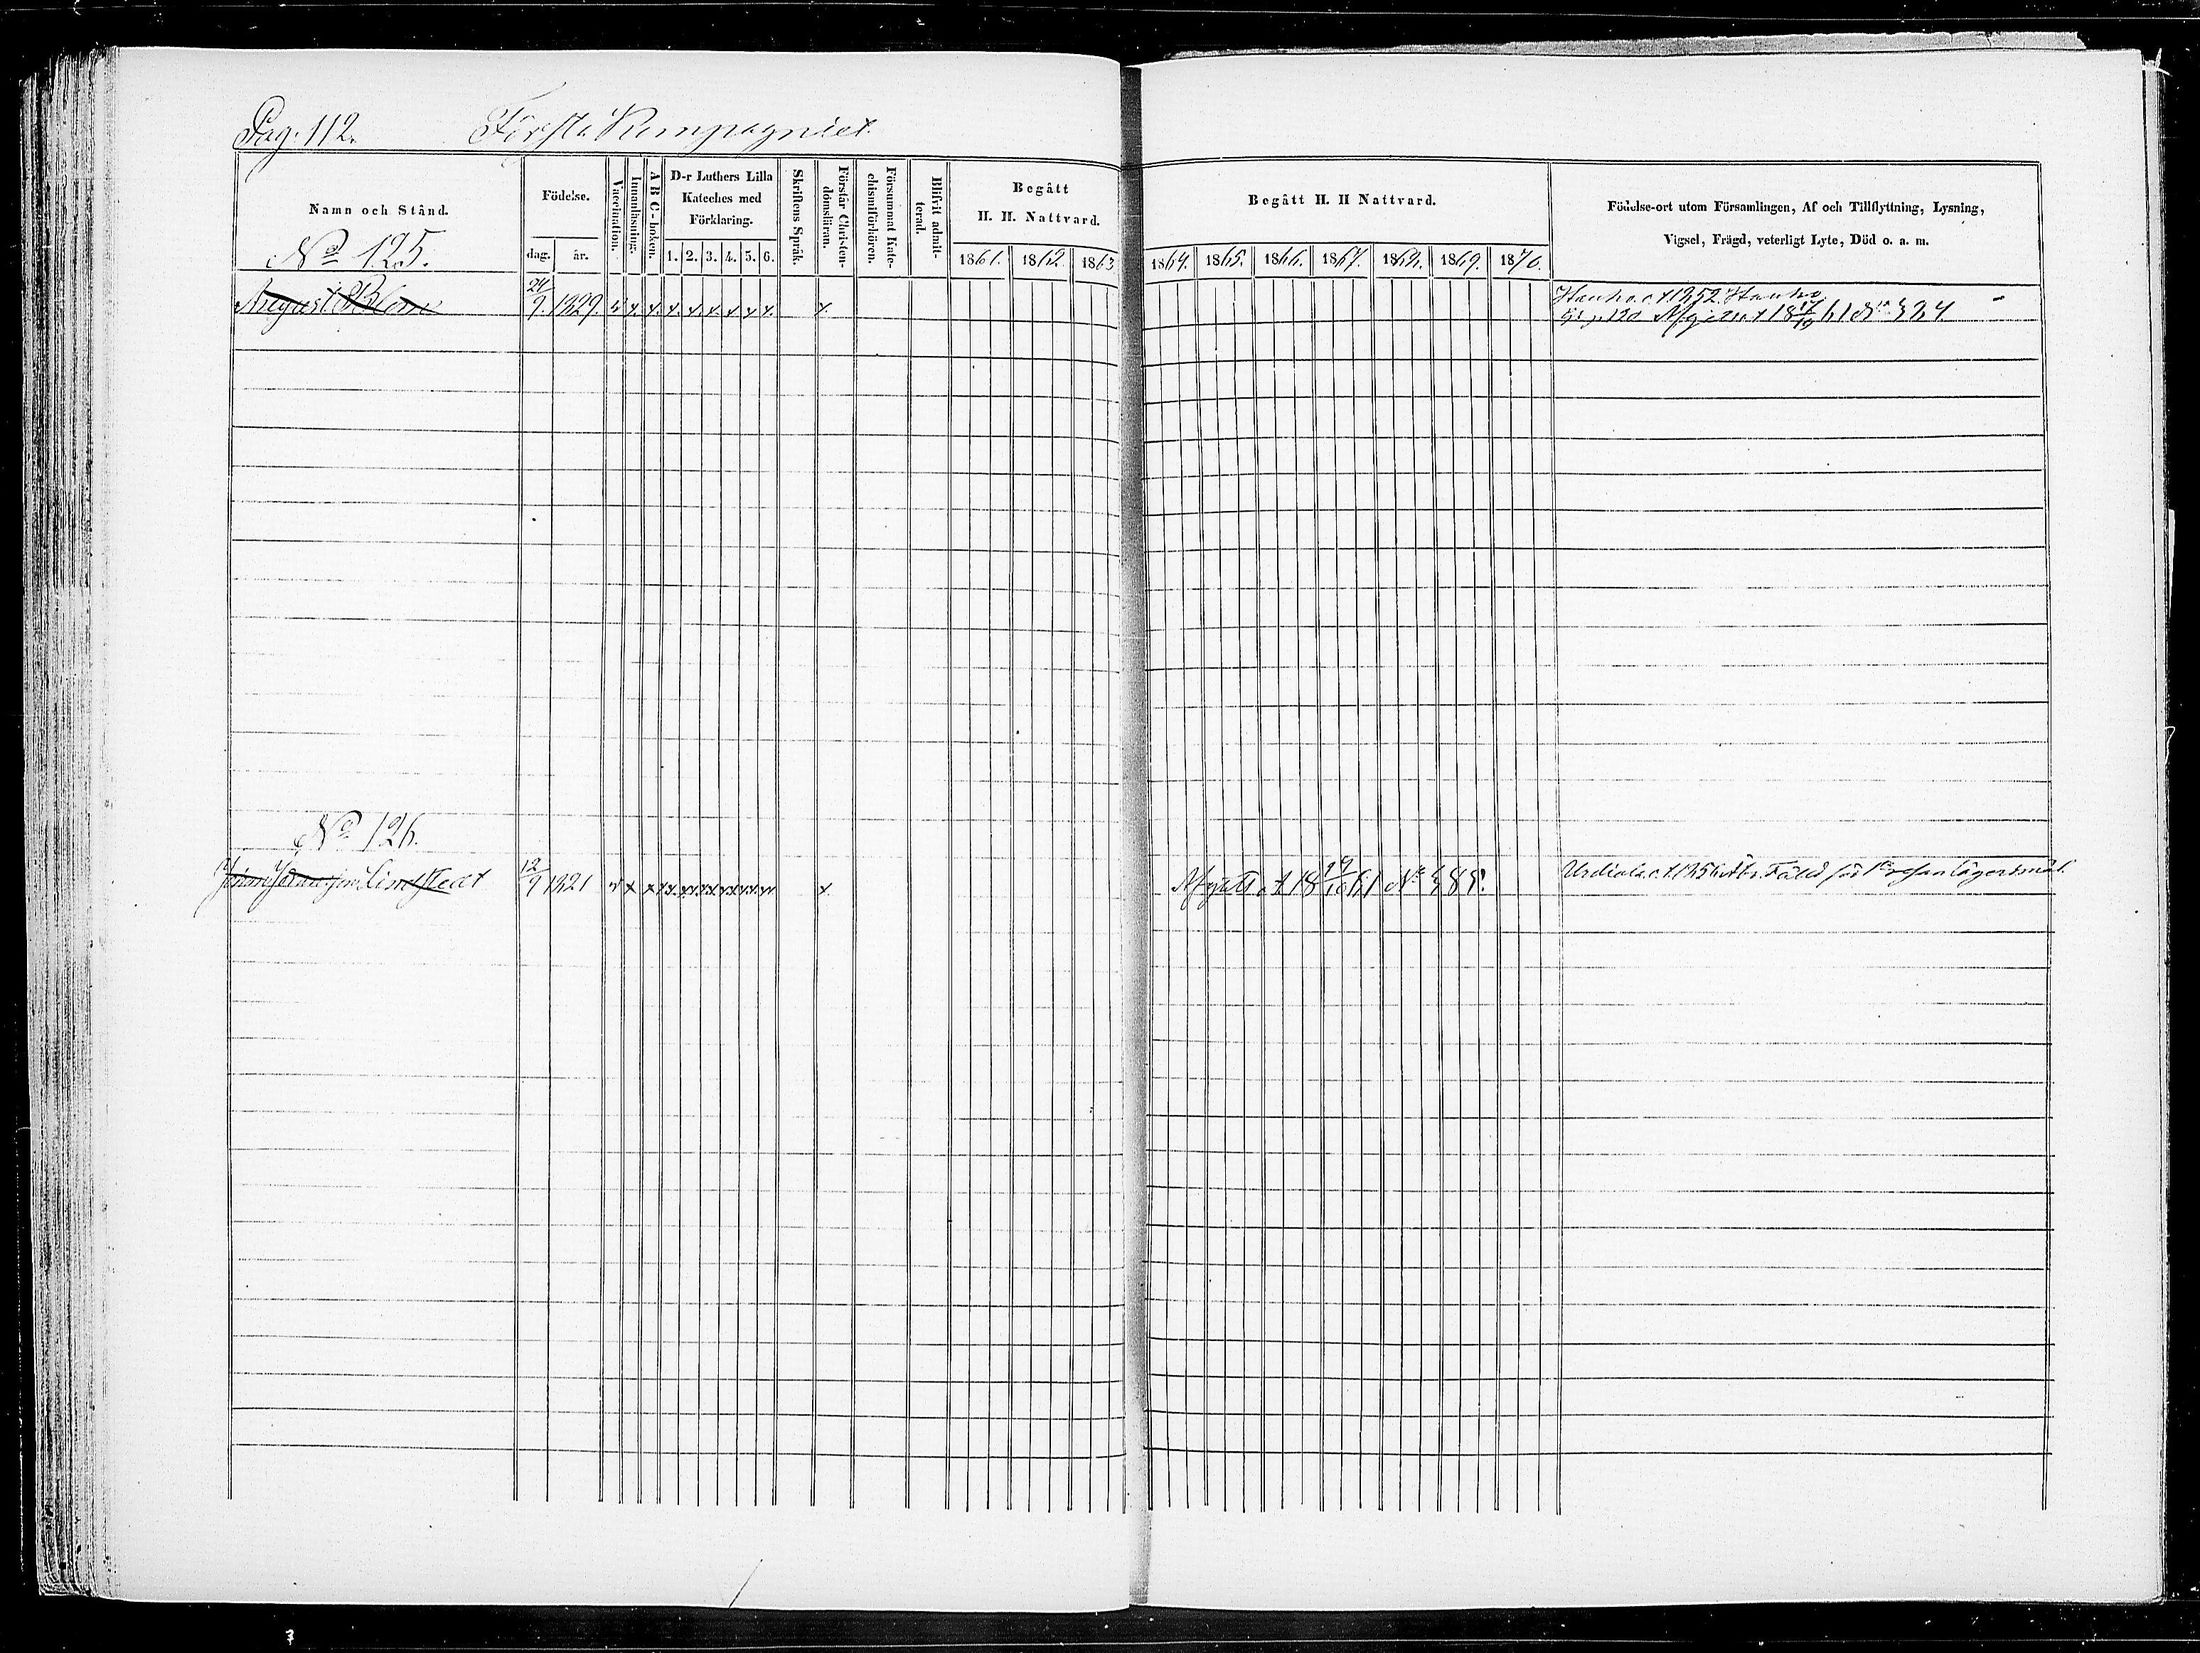 Pag. 112. Första Kompagniet.
Namn och Stånd.
Födelse.
dag. år.
Vaccination.
Innanläsning.
A B C-boken.
D-r Luthers Lilla
Kateches med
Förklaring.
1. 2. 3. 4. 5. 6.
Skriftens Språk.
Förstår Christen-
domsläran.
Försummat Kate-
chismiförhören.
Blifvit admit-
terad.
Begått
H. H. Nattvard.
1861. 1862. 1863
Begått H. H Nattvard.
1864. 1865. 1866. 1867. 1868. 1869. 1870.
Födelse-ort utom Församlingen, Af och Tillflyttning, Lysning,
Vigsel, Frägd, veterligt Lyte, Död o. a. m.
No 125.
August Blom 24/9. 1829. v x. x. x. x. x. x x x. x.
Hauho 1852. Hauho
120 18 17/19 61 No 324
No 126.
Johan Johansson Lindstedt 12/9 1821 v x x x x x x x x x.
18 29/10 61 No
Urdiala 1856 Fälld för